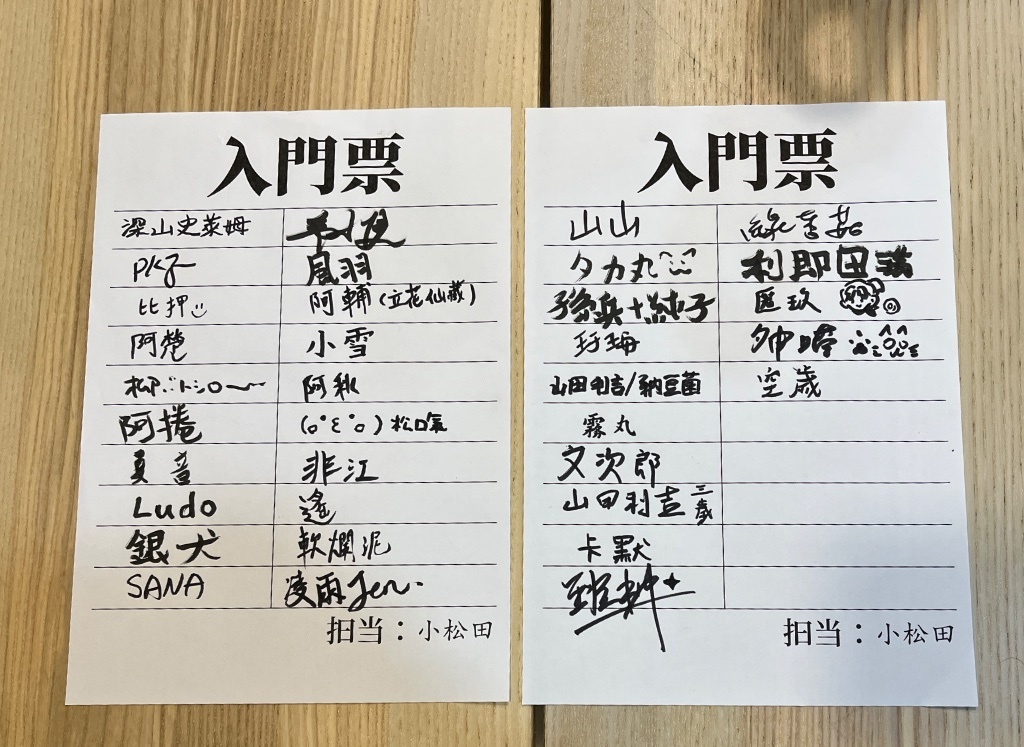 入門票
深山史萊姆
PK子
風羽
比押
阿輔(立花仙藏)
阿楚
小雪
阿秋
阿捲
(｡°ε°｡)松
夏音
非江
Ludo
遙
銀犬
軟爛泥
SANA
凌雨Jen.
担当：小松田
入門票
山山
タカ丸^^
利即田
孫兵+純子
匡玖
山田利吉/納豆菌
空歳
霧丸
文次郎
山田利吉三歲
卡默
担当：小松田